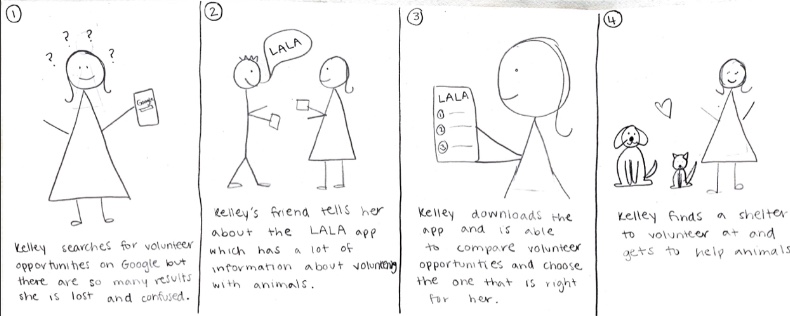 1
? ? ? ?
Google
Kelley searches for volunteer
opportunities on Google but
there are so many results
she is lost and confused.
2
LALA
Kelley's friend tells her
about the LALA app
which has a lot of
information about volunteering
with animals.
3
LALA
1
2
3
Kelley downloads the
app and is able
to compare volunteer
opportunities and choose
the one that is right
for her.
4
Kelley finds a shelter
to volunteer at and
gets to help animals